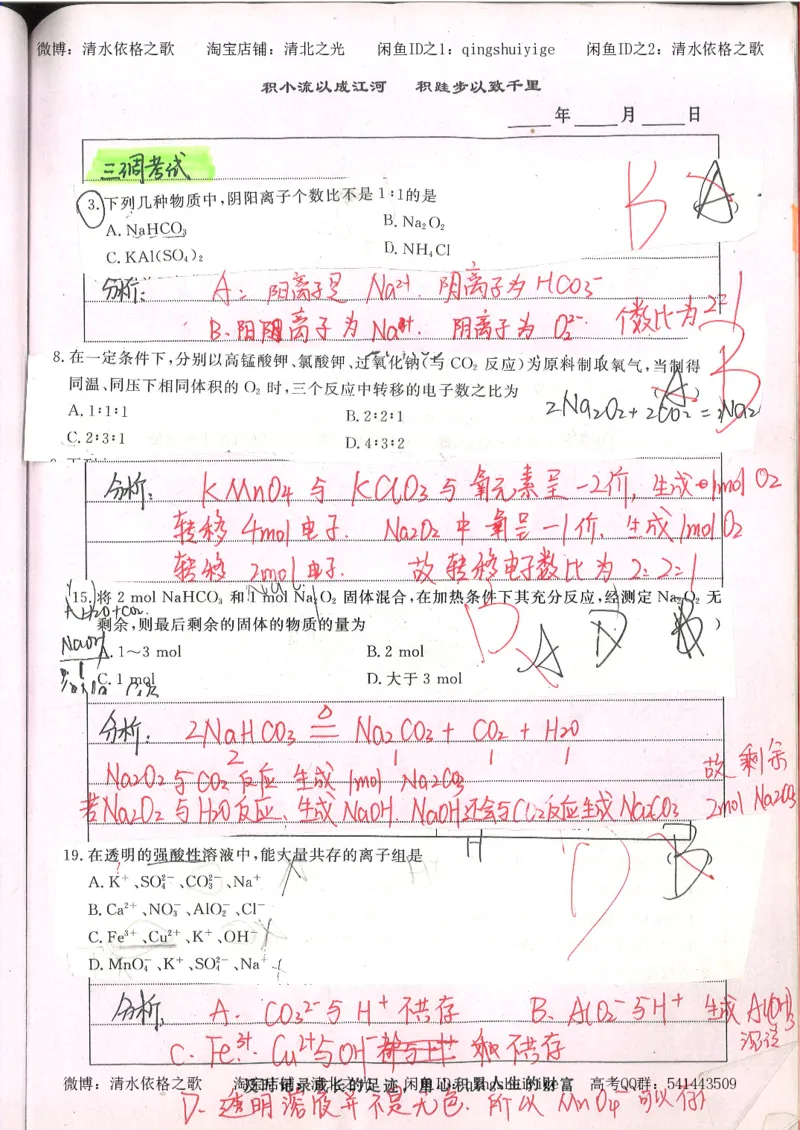 微博：清水依格之歌 淘宝店铺：清北之光 闲鱼ID之1：qingshuiyige 闲鱼ID之2：清水依格之歌
积小流以成江河 积跬步以致千里
年 月 日
三调考试
3.下列几种物质中,阴阳离子个数比不是1∶1的是
A. NaHCO₃ B. Na₂O₂
C. KAl(SO₄)₂ D. NH₄Cl
B A
分析: A: 阳离子是 Na²⁺. 阴离子为 HCO₃⁻
B、阳离子为 Na⁺. 阴离子为 O₂²⁻. 个数比为2=1
8.在一定条件下,分别以高锰酸钾、氯酸钾、过氧化钠(与 CO₂ 反应)为原料制取氧气,当制得
同温、同压下相同体积的 O₂ 时,三个反应中转移的电子数之比为 (A)
B
A. 1∶1∶1 B. 2∶2∶1
2Na₂O₂+2CO₂=2Na₂
C. 2∶3∶1 D. 4∶3∶2
分析: KMnO₄与 KClO₃与氧元素呈-2价, 生成1mol O₂
转移4mol电子. Na₂O₂中氧呈-1价. 生成1molO₂
转移2mol电子. 故转移电子数比为2=2=1
15.将 2 mol NaHCO₃ 和 1 mol Na₂O₂ 固体混合,在加热条件下其充分反应,经测定 Na₂O₂ 无
H₂O+CO₂
剩余,则最后剩余的固体的物质的量为 )
NaOH
D A D B
A. 1～3 mol B. 2 mol
C. 1 mol D. 大于 3 mol
分析: 2NaHCO₃ =△= Na₂CO₃ + CO₂ + H₂O
2 1 1 1
Na₂O₂与CO₂反应 生成 1mol Na₂CO₃ 故剩余
若Na₂O₂与H₂O反应、生成NaOH NaOH还会与CO₂反应生成Na₂CO₃ 2mol Na₂CO₃
19.在透明的强酸性溶液中,能大量共存的离子组是 (B)
D
A. K⁺、SO₄²⁻、CO₃²⁻、Na⁺
B. Ca²⁺、NO₃⁻、AlO₂⁻、Cl⁻
C. Fe³⁺、Cu²⁺、K⁺、OH⁻
D. MnO₄⁻、K⁺、SO₄²⁻、Na⁺
分析, A. CO₃²⁻与H⁺不共存 B、AlO₂⁻与H⁺ 生成 Al(OH)₃
沉淀
C. Fe³⁺. Cu²⁺与OH⁻ 不共存
微博：清水依格之歌 淘宝店铺：清北之光 闲鱼ID：qingshuiyige 高考QQ群：541443509
及时记录成长的足迹，用心积累人生的财富
D. 透明溶液并不是无色. 所以 MnO₄⁻可以存